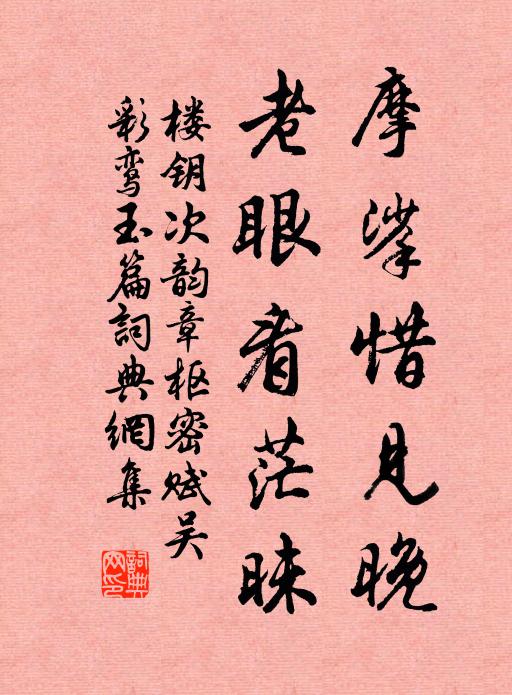 摩挲惜见晚
老眼看茫昧
楼钥次韵章枢密赋吴
彩鸾玉篇詞典網集
詞典
网印